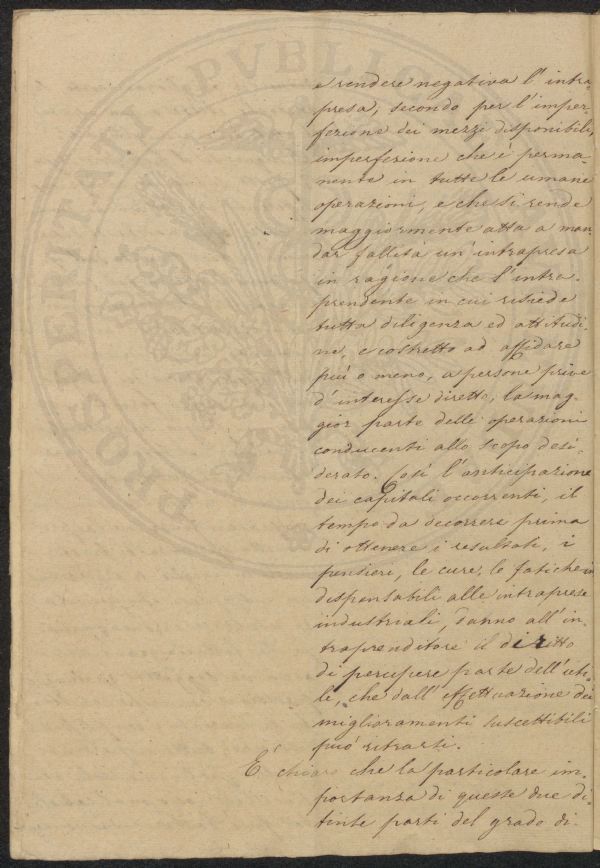 e rendere negativa l'intra-
presa, secondo per l'imper-
fezione dei mezzi disponibili,
imperfezione che è perma-
nente in tutte le umane
operazioni, e che si rende
maggiormente atta a man
dar fallita un'intrapresa
in ragione che l'intra-
prendente in cui risiede
tutta diligenza ed attitudi-
ne, e costretto ad affidare
più o meno, a persone prive
d'interesse diretto, la mag-
gior parte delle operazioni
conducenti allo scopo desi-
derato. Così l'anticipazione
dei capitali occorrenti, il
tempo da decorrere prima
di ottenere i resultati, i
pensieri, le cure, le fatiche in
dispensabili alle intraprese
industriali, danno all'in-
traprenditore il diritto
di percipere parte dell'uti-
le, che dall'effettuazione dei
miglioramenti suscettibili
può ritrarsi.
E' chiaro che la particolare im-
portanza di queste due di-
tinte parti del grado di-
PROSPERITATI PVBLICAE